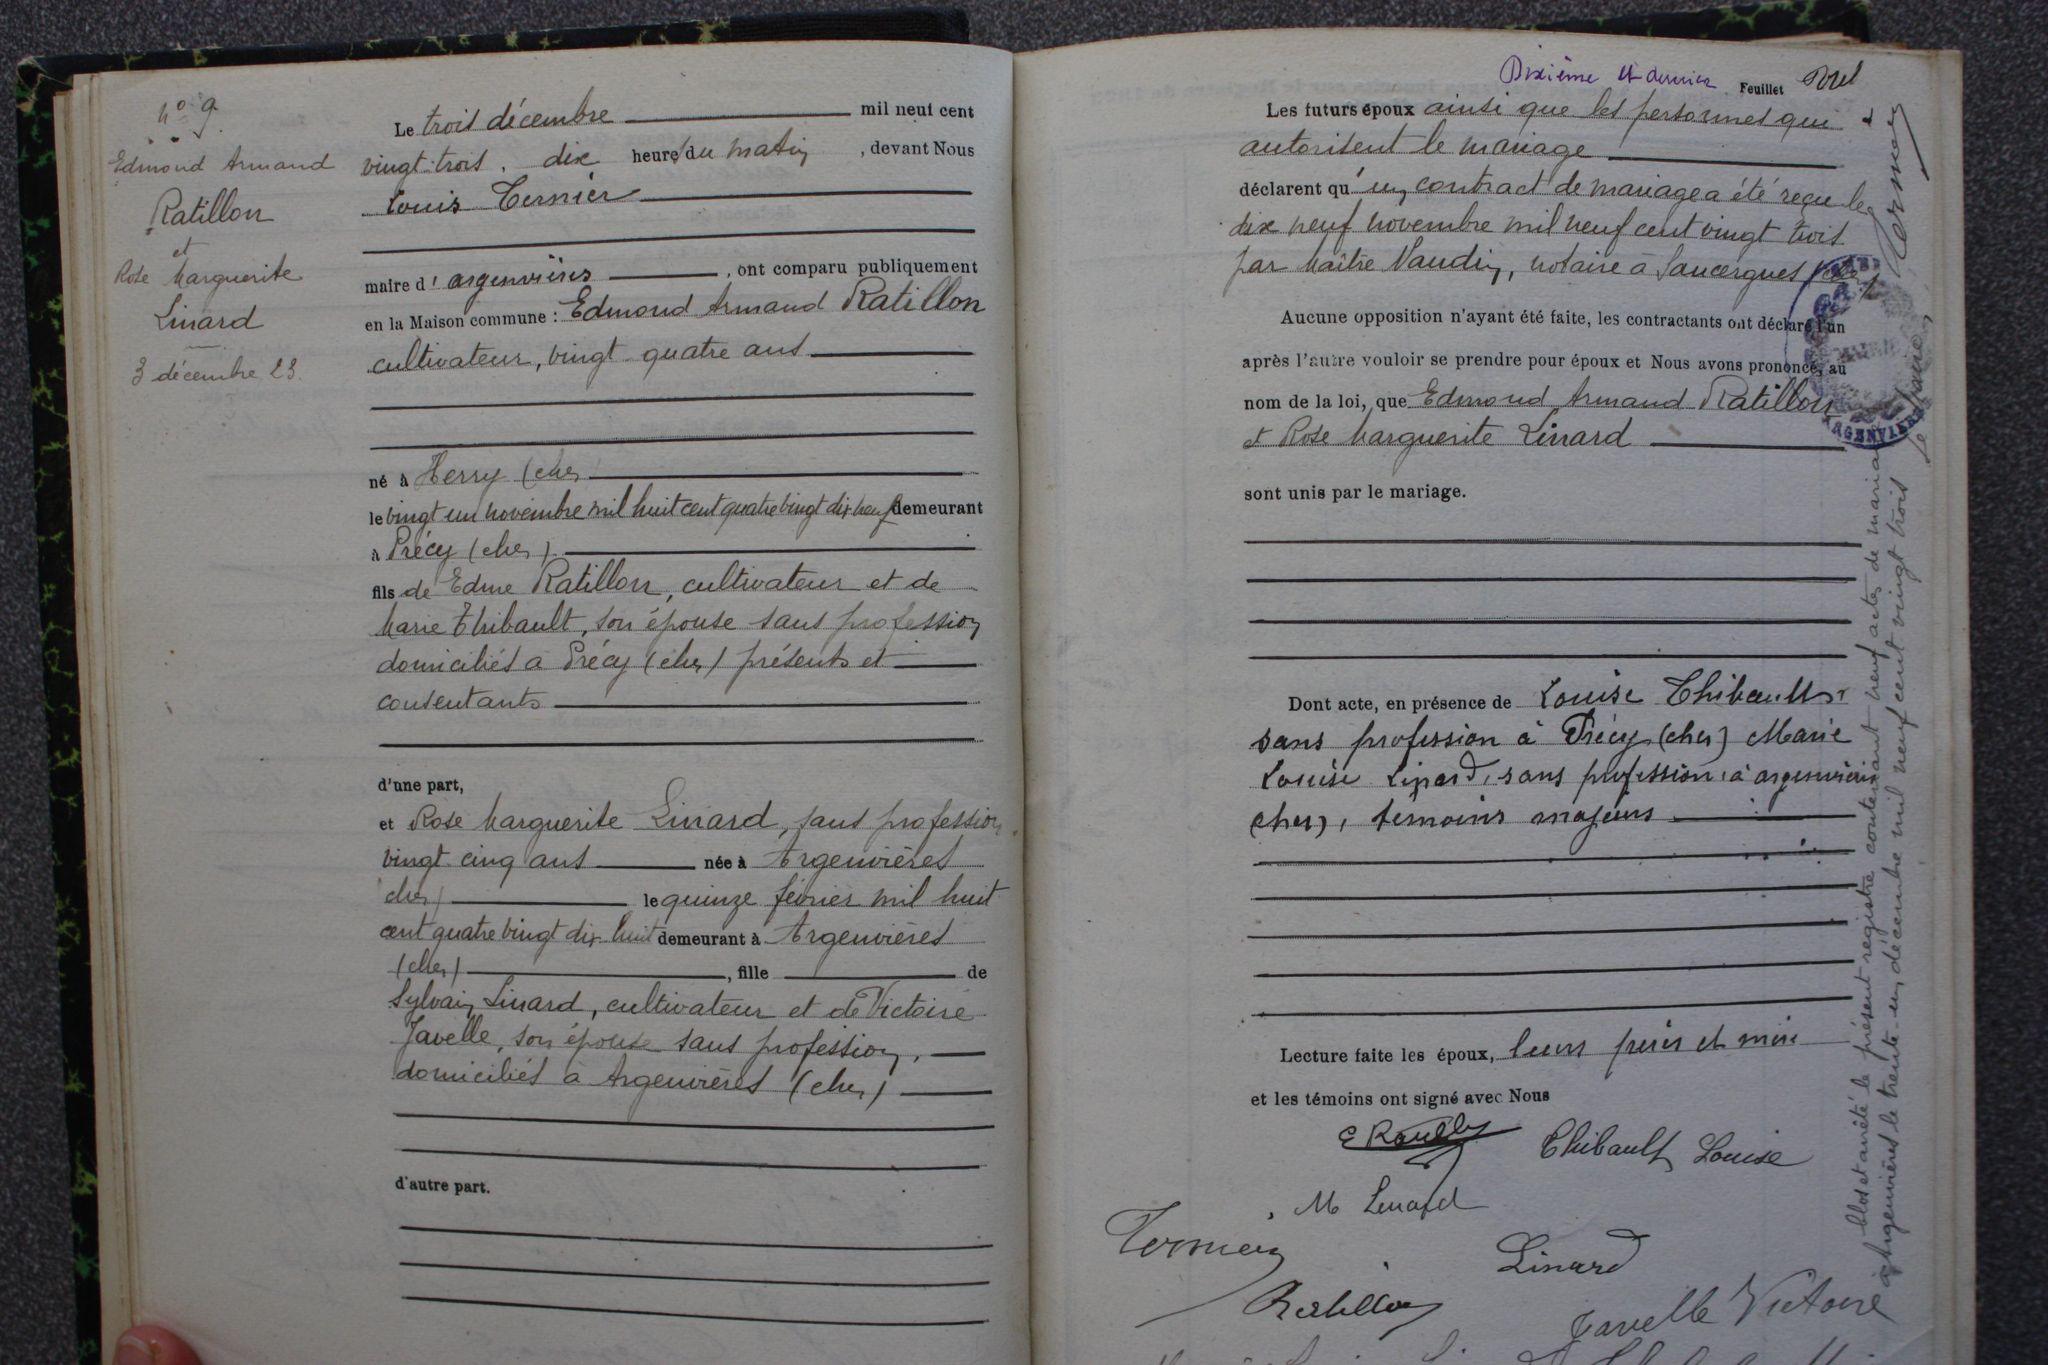 n° 9.
Edmond Armand
Ratillon
et
Rose Marguerite
Linard
3 décembre 23.
Le trois décembre mil neuf cent
vingt-trois, dix heures du matin, devant Nous
Louis Ternier
maire d'Argenvières, ont comparu publiquement
en la Maison commune : Edmond Armand Ratillon
cultivateur, vingt-quatre ans
né à Herry (cher)
le vingt un novembre mil huit cent quatre vingt dix neuf demeurant
à Précy (cher)
fils de Edme Ratillon, cultivateur et de
Marie Thibault, son épouse sans profession
domiciliés à Précy (cher) présents et
consentants
d'une part,
et Rose Marguerite Linard, sans profession
vingt cinq ans née à Argenvières
cher) le quinze février mil huit
cent quatre vingt dix huit demeurant à Argenvières
(cher), fille de
Sylvain Linard, cultivateur et de Victoire
Javelle, son épouse sans profession,
domiciliés à Argenvières (cher)
d'autre part.
Dixième et dernier Feuillet
Les futurs époux ainsi que les personnes qui
autorisent le mariage
déclarent qu'un contract de mariage a été reçu le
dix neuf novembre mil neuf cent vingt trois
par Maître Vaudin, notaire à Sancergues (cher)
Aucune opposition n'ayant été faite, les contractants ont déclaré l'un
après l'autre vouloir se prendre pour époux et Nous avons prononcé, au
nom de la loi, que Edmond Armand Ratillon
et Rose Marguerite Linard
sont unis par le mariage.
Dont acte, en présence de Louise Thibault,
sans profession à Précy (cher) Marie
Louise Linard, sans profession, à argenvières
(cher), témoins majeurs
Lecture faite les époux, leurs pères et mère
et les témoins ont signé avec Nous
Thibault Louise
M Linard
Ternier
Linard
Ratillon
Javelle Victoire
Clos et arrêté le présent registre contenant neuf actes de mariage
à Argenvières le trente-un décembre mil neuf cent vingt trois
Le Maire,
Ternier
MAIRIE
ARGENVIÈRES